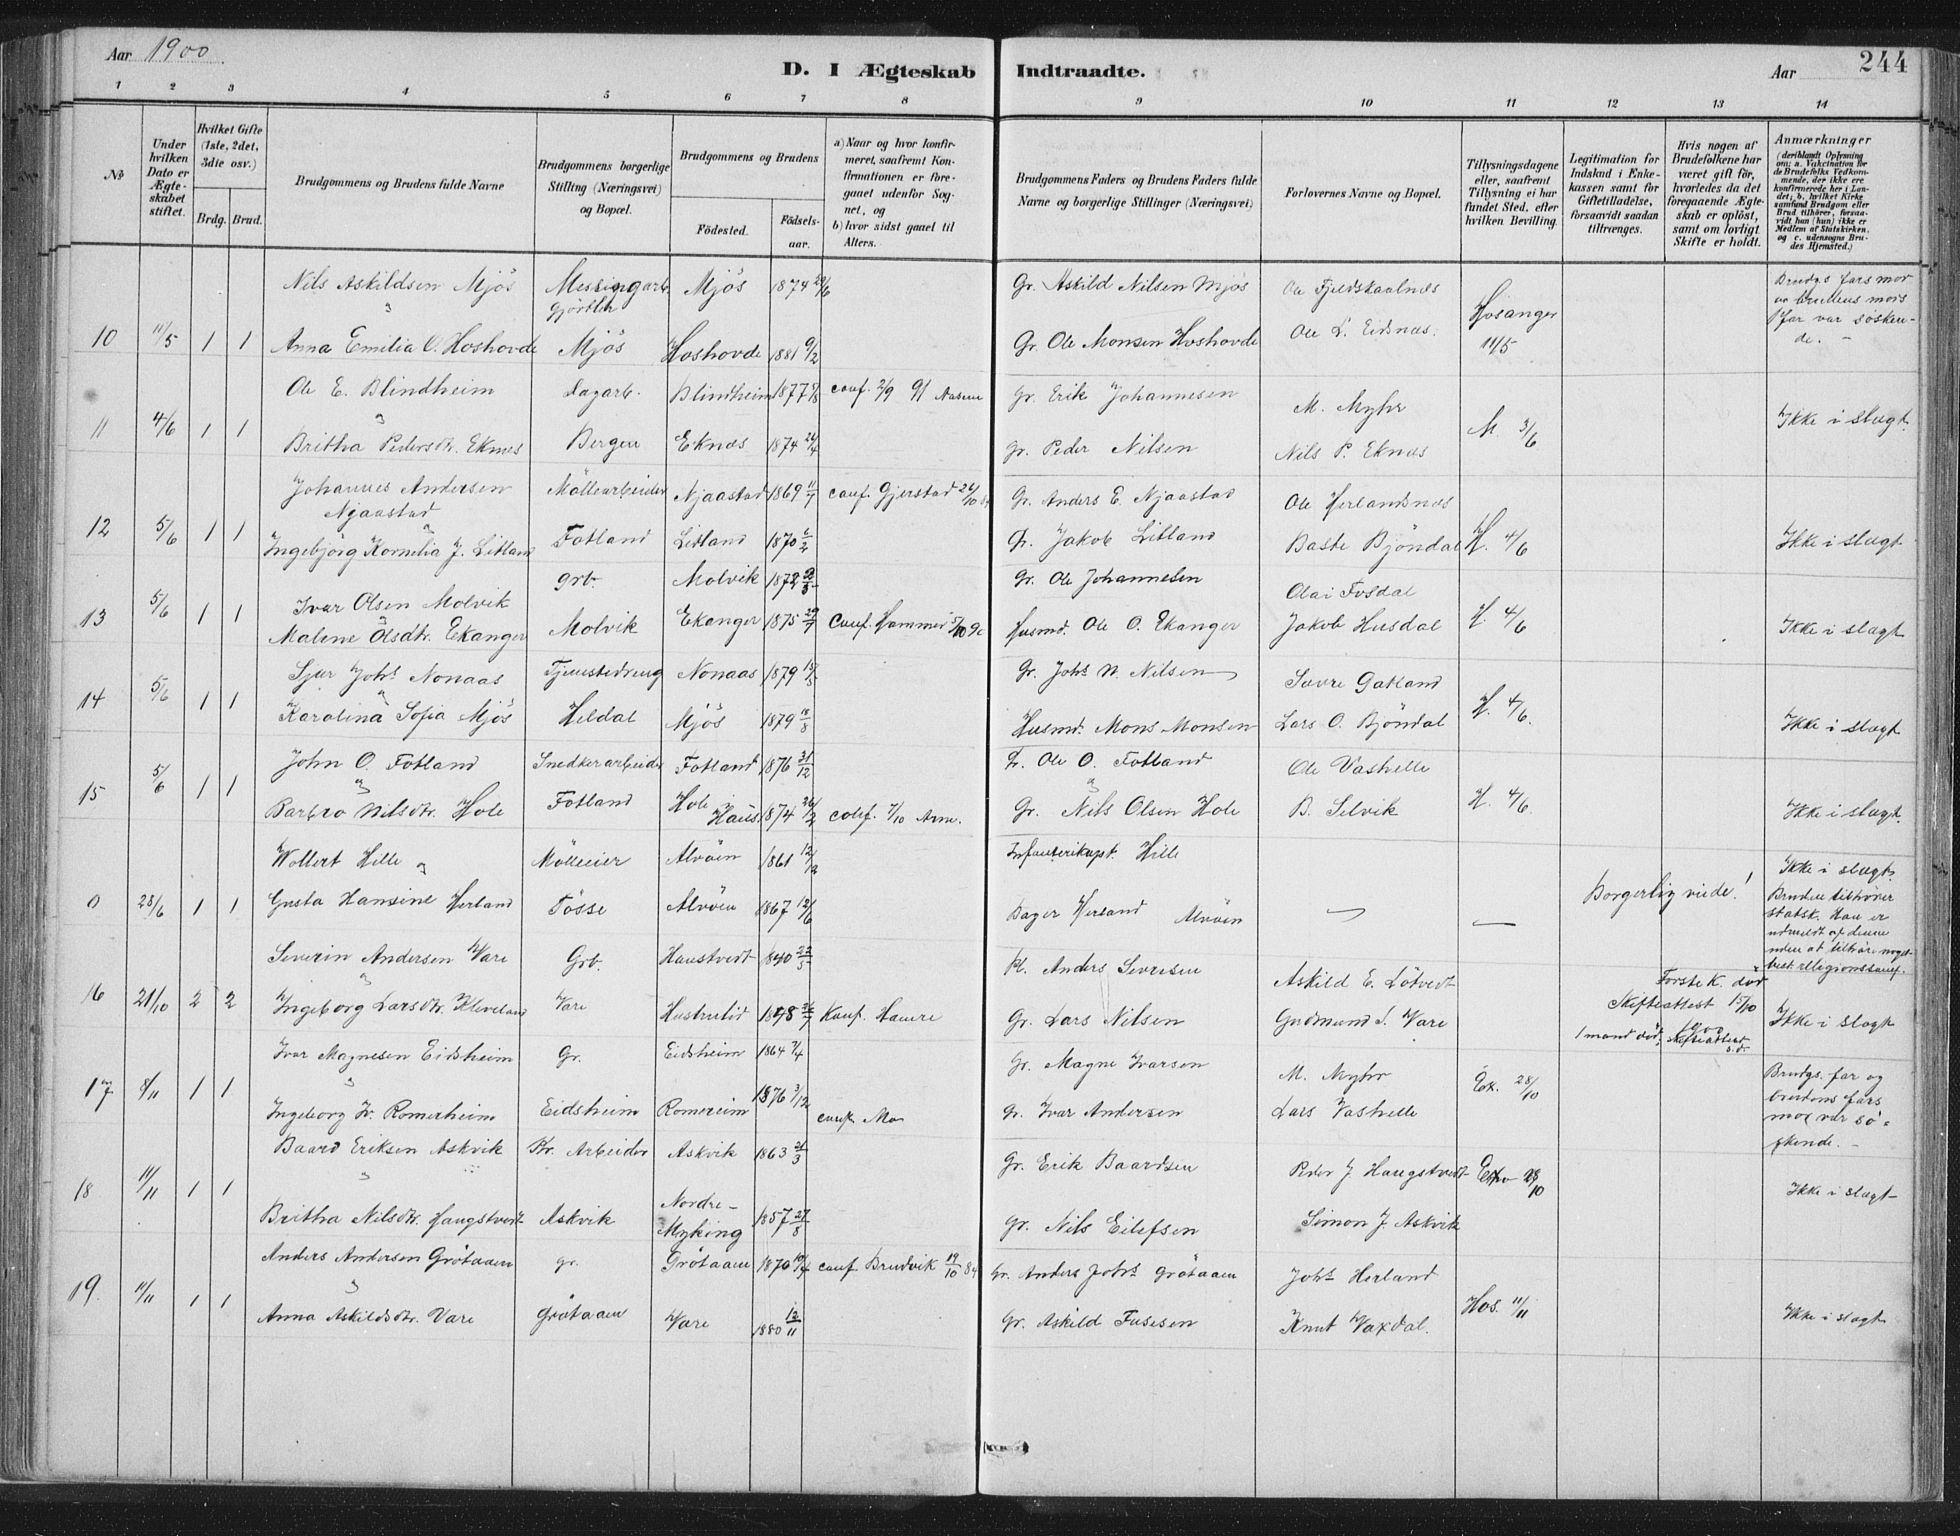 Aar 1900.
D. I Ægteskab Indtraadte.
Aar 244
1 2 3 4 5 6 7 8 9 10 11 12 13 14
№
Under hvilken Dato er Ægteskabet stiftet.
Hvilket Gifte (1ste, 2det, 3die osv.)
Brdg. Brud.
Brudgommens og Brudens fulde Navne
Brudgommens borgerlige Stilling (Næringsvei) og Bopæl.
Brudgommens og Brudens
Födested. Födsels-aar.
a) Naar og hvor konfirmeret, saafremt Konfirmationen er foregaaet udenfor Sognet, og b) hvor sidst gaaet til Alters.
Brudgommens Faders og Brudens Faders fulde Navne og borgerlige Stillinger (Næringsvei)
Forlovernes Navne og Bopæl.
Tillysningsdagene eller, saafremt Tillysning ei har fundet Sted, efter hvilken Bevilling.
Legitimation for Indskud i Enkekassen samt for Giftetilladelse, forsaavidt saadan tiltrænges.
Hvis nogen af Brudefolkene har været gift för, hvorledes da det foregaaende Ægteskab er oplöst, samt om lovligt Skifte er holdt.
Anmærkninger (deriblandt Oplysning om: a. Vakcination for de Brudefolks Vedkommende, der ikke ere konfirmerede her i Landet; b. hvilket Kirkesamfund Brudgom eller Brud tilhörer, forsaavidt han (hun) ikke er Medlem af Statskirken, og c. udensogns Brudes Hjemsted.)
Nils Askildsen Mjös Messingarb. Mjös 1874 Gr. Askild Nilsen Mjös Ole Fjeldskaalnæs Brudgs fars mor
gjörtler og brudens mors
10 11/5 1 1 Anna Emilia O. Hoshovde Mjös Hoshovde 1881 9/2 Gr. Ole Monsen Hoshovde Ole L. Eidsnæs. Hosanger 11/5 far var sösken-
de. -
Ole E. Blindheim Dagarb. Blindheim 1877 conf. 2/9 91 Gr. Erik Johannesen M. Myhr
11 4/6 1 1 Britha Pedersdtr. Eknes Bergen Eknæs 1874 24/4 gr. Peder Nilsen Nils P. Eknæs M. 3/6 Ikke i slægt.
Johannes Andersen Möllearbeider Njaastad 1869 11/7 conf. Gjerstad 26/10 84 Gr. Anders E. Njaastad Ole Herlandsnæs
Njaastad
12 5/6 1 1 Ingebjörg Kornelia J. Litland Fotland Litland 1870 Jakob Litland Baste Bjöndal H. 4/6 Ikke i slægt
Ivar Olsen Molvik grb Molvik 1872 Gr. Ole Johannesen Olai Fosdal
13 5/6 1 1 Malene Olsdtr. Ekanger Molvik Ekanger 1875 29/7 Conf. Hammer 5/10 90 Husmd. Ole O. Ekanger Jakob Husdal H. 4/6 Ikke i slægt
Sjur Johs Nonaas Tjenestedreng Nonaas 1879 Gr. Johs N. Nilsen Sevre Gatland
14 5/6 1 1 Karolina Sofia Mjös Heldal Mjös 1879 18/8 Husmd. Mons Monsen Lars O. Bjöndal H. 4/6. Ikke i slægt
John O. Fotland Snedkerarbeider Fotland 1876 31/12 Ole O. Fotland Ole Vastvelle
15 5/6 1 1 Barbro Nilsdtr. Hole Fotland Hole Haus. 1874 26/2 conf. 7/10 Arne. Gr. Nils Olsen Hole B. Selvik H. 4/6. Ikke i slægt.
Wollert Hille Mölleeier Alvöen 1861 12/12 Infanterikapt. Hille Ikke i slægt.
0 28/6 1 1 Gusta Hansine Herland Fosse Alvöen 1867 12/6 Bager Herland Alvöen — — Borgerlig viede! Bruden tilhörer
statsk. Han er
udmeldt af denne
uden at tilhöre noget
best. religionssamf.
Severin Andersen Vare Grb. Haustvedt 1840 Pl. Anders Sevrisen Askild E. Lötvedt Förste K. död
16 21/10 2 2 Ingeborg Larsdtr. Kleveland Vare 1848 26/7 Konf. Hamre Gr. Lars Nilsen Gudmund S. Vare Skifteattest 15/10 1900 Ikke i slægt
1 mand död, skifteattest s.d.
Ivar Magnesen Eidsheim Gr. Eidsheim 1864 7/4 Gr. Magne Ivarsen M. Myhr Brudgs. far og
17 8/11 1 1 Ingeborg Iv. Romerheim Eidsheim Romereim 1876 3/12 conf. Mo gr. Ivar Andersen Lars Vastvelle Ex. 28/10 brudens fars
mor var sö-
skende. -
Baard Eriksen Askvik Fbr. Arbeider Askvik 1863 21/3 Gr. Erik Baardsen Peder J. Haugstvedt
18 11/11 1 1 Britha Nilsdtr. Haugstvedt Askvik Nordre-Myking 1857 27/8 gr. Nils Eilefsen Simon J. Askvik 28/10 Ikke i slægt
Anders Andersen Grötaaen gr. Grötaaen 1870 conf Bruvik 19/10 84 Gr. Anders Johs Grötaaen Johs Herland
19. 11/11 1 1 Anna Askildsdtr. Vare Grötaaen Vare 1880 12/11 Gr. Askild Fusesen Knut Vaxdal. Hos. 11/11 Ikke i slægt